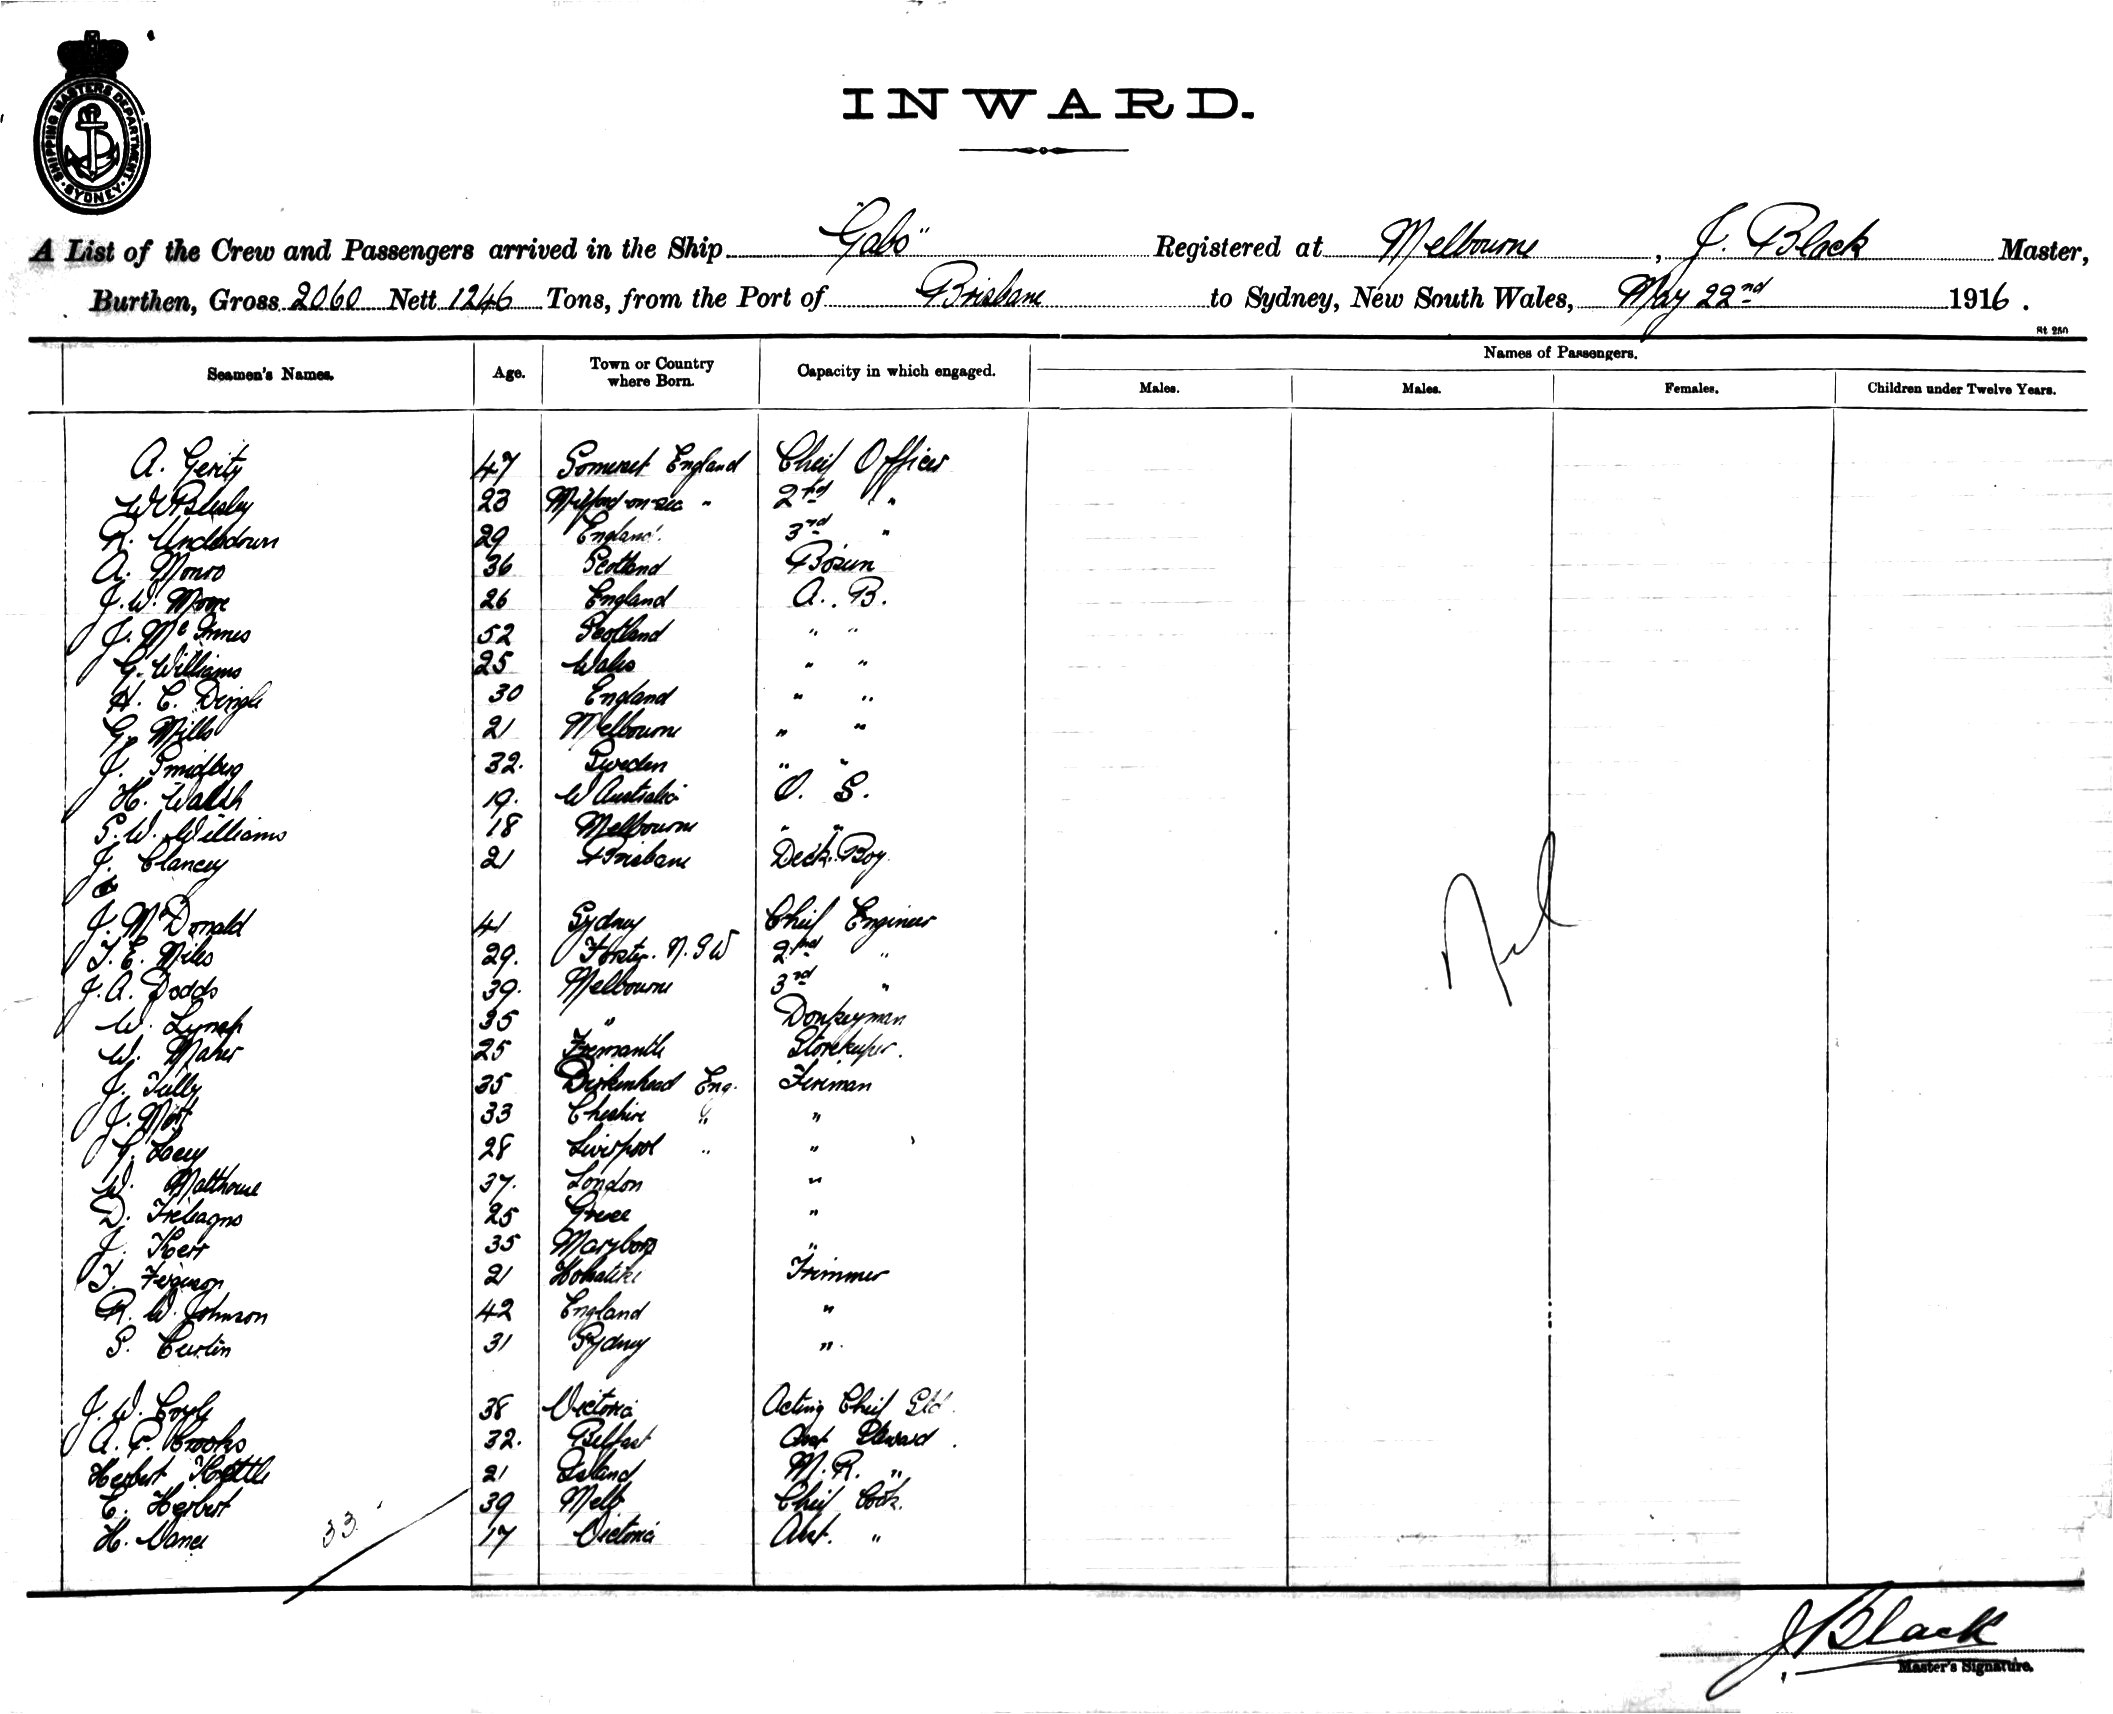 SHIPPING MASTERS DEPARTMENT. SYDNEY.
INWARD.
A List of the Crew and Passengers arrived in the Ship "Gabo" Registered at Melbourne, J. Black Master,
Burthen, Gross 2060 Nett 1246 Tons, from the Port of Brisbane to Sydney, New South Wales, May 22nd 1916.
St 250
Names of Passengers.
Seamen's Names. Age. Town or Country where Born. Capacity in which engaged. Males. Males. Females. Children under Twelve Years.
A. Gerity 47 Somerset England Cheif Officer
W Blesley 23 Milford-on-sea " 2nd "
R. Underdown 29 England. 3rd "
A. Monro 36 Scotland Bosun
J. W. Moore 26 England A. B.
J. McInnes 52 Scotland " "
G. Williams 25 Wales " "
H. C. Dingle 30 England " "
G. Mills 21 Melbourne " "
J. Smidberg 32. Sweden " "
H. Walsh 19. W Australia O. S.
S. W. Williams 18 Melbourne " "
J. Clancey 21 Brisbane Deck. Boy
J. McDonald 41 Sydney Cheif Engineer
T. E. Miles 29. Forster. N. S W 2nd "
J. A. Dodds 39. Melbourne 3rd "
W. Lynch 35 " Donkeyman
W. Maher 25 Fremantle Storekeeper.
J. Tully 35 Birkenhead Eng. Fireman
J. 33 Cheshire " "
Lacey 28 Liverpool " "
W. Malthouse 37. London "
D. 25 Greece "
J. Kerr 35 Maryboro "
T. Ferguson 21 Hokatiki Trimmer
R. W. Johnson 42 England "
S. Curtin 31 Sydney "
J. W. 38 Victoria Acting Cheif Std.
A. P. Crooks 32. Belfast Asst Steward.
Herbert Kettle 21 Island M. R. "
C. Herbert 39 Melb Cheif Cook.
H. Vance 17 Victoria Asst. "
33
Nil
J Black
Master's Signature.